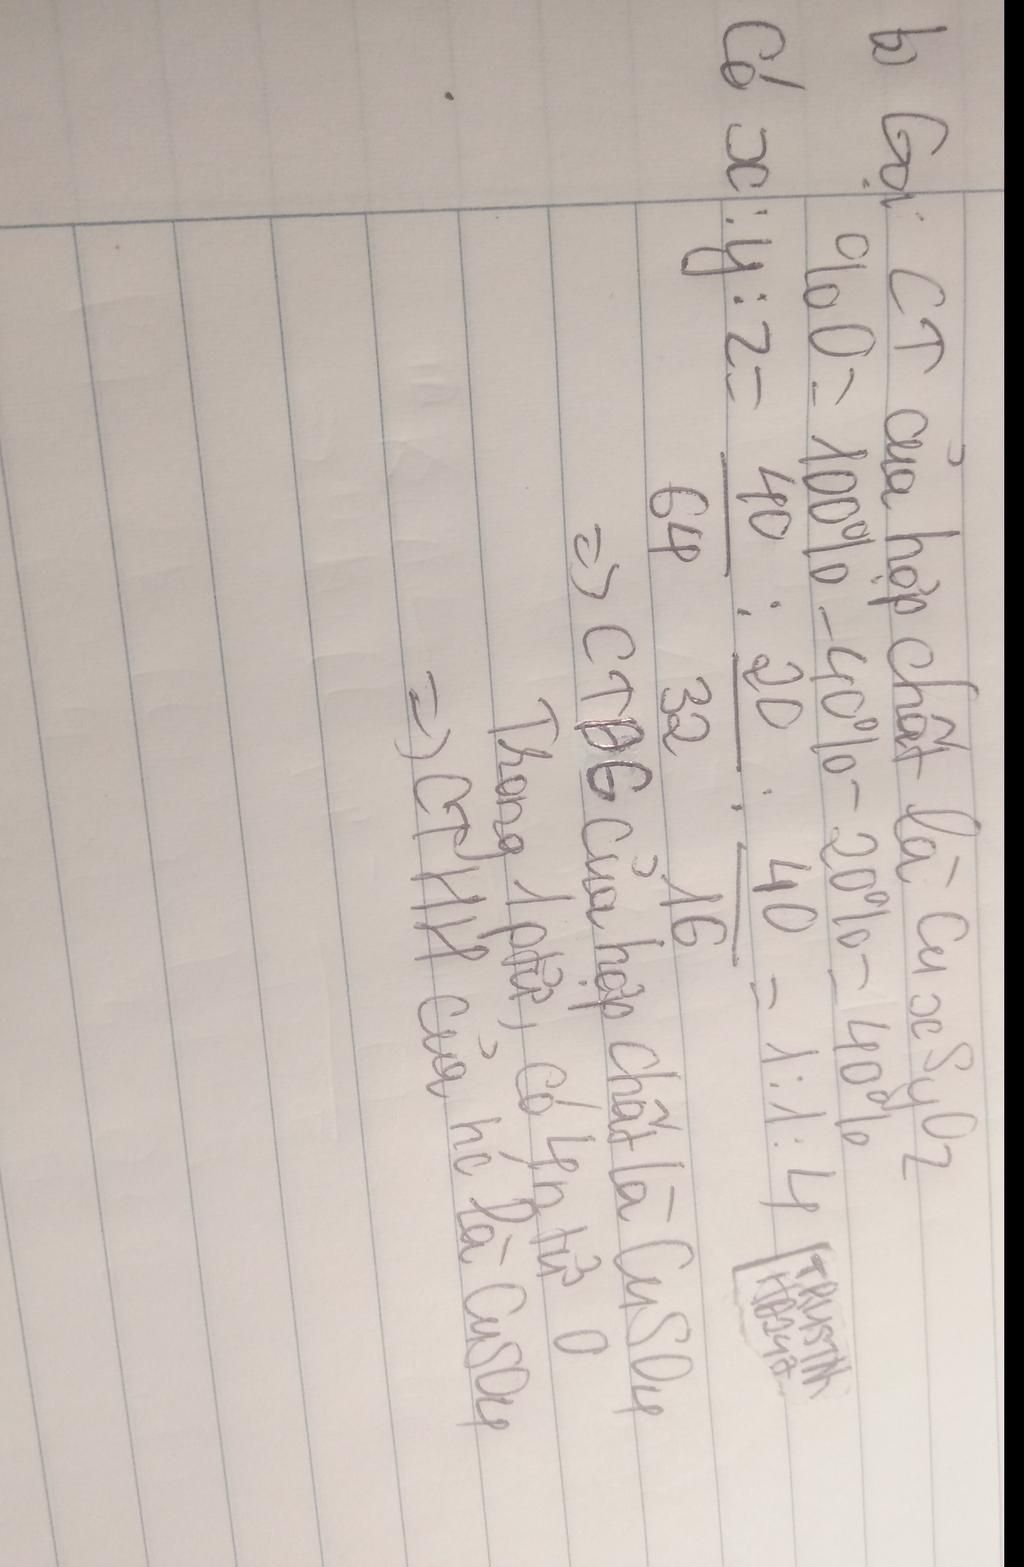 b Gọi CT của hợp chất là CuxSyOz
%O = 100% - 40% - 20% = 40%
Có x : y : z = 40/64 : 20/32 : 40/16 = 1 : 1 : 4
=> CTĐG của hợp chất là CuSO4
Trong 1 ptử, có 4 ntử O
=> CTHH của hc là CuSO4